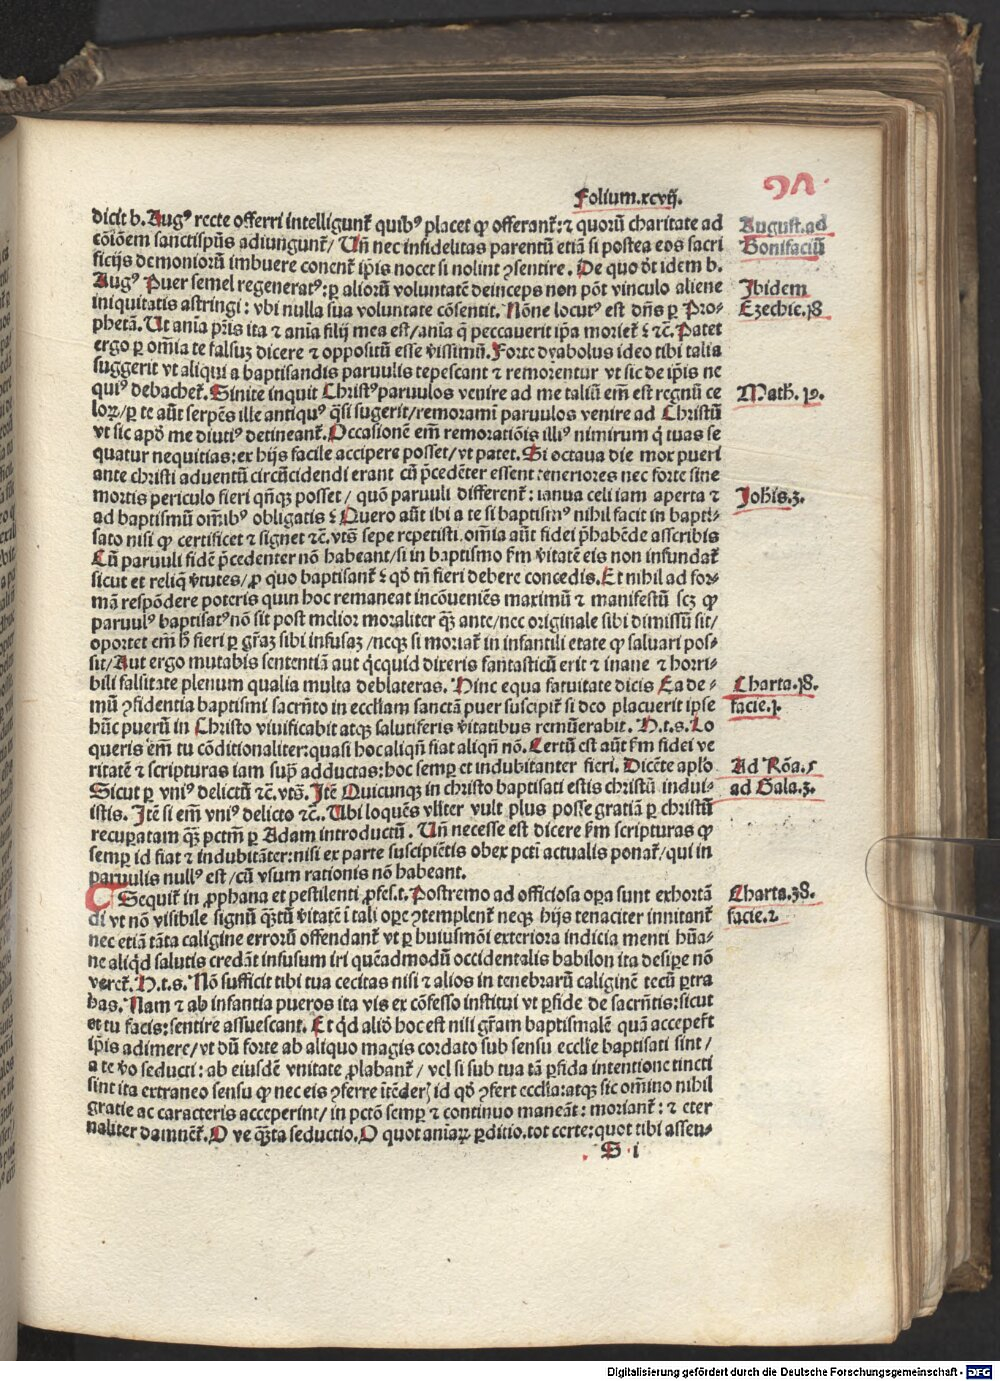 Folium.xcvij.
dicit b. Augꝰ recte offerri intelligunt᷑ quibꝰ placet ꝙ offerant᷑:⁊ quorū charitate ad
cōiōem sanctispūs adiungunt᷑/ Un̄ nec infidelitas parentū etiā si postea eos sacri
ficijs demoniorū imbuere conent᷑ ip̄is nocet si nolint ꝯsentire. De quo dt̄ idem b.
Augꝰ Puer semel regeneratꝰ:ꝑ aliorū voluntatē deinceps non pōt vinculo aliene
iniquitatis astringi: vbi nulla sua voluntate cōsentit. Nōne locutꝰ est dn̄s ꝑ Pro-
phetā. Ut anīa pr̄is ita ⁊ anīa filij mea est/anīa q̄ peccauerit ip̄a moriet᷑ ⁊ ⁊c̄. Patet
ergo ꝑ om̄ia te falsuꝫ dicere ⁊ oppositū esse v̄issimū. Forte dyabolus ideo tibi talia
suggerit vt aliqui a baptisandis paruulis tepescant ⁊ remorentur vt sic de ip̄is ne
quiꝰ debachet᷑. Sinite inquit Christꝰ paruulos venire ad me taliū em̄ est regnū ce
loꝝ/ꝑ te aūt serpēs ille antiquꝰ q̄si sugerit/remoramī paruulos venire ad Christū
vt sic apd̄ me diutiꝰ detineant᷑. Occasionē em̄ remoratiōis illiꝰ nimirum q̇ tuas se
quatur nequitias:ex hijs facile accipere posset/vt patet. Si octaua die mox pueri
ante christi aduentū circūcidendi erant cū p̄cedēter essent teneriores nec forte sine
mortis periculo fieri qn̄qꝫ posset/ quō paruuli different᷑: ianua celi iam aperta ⁊
ad baptismū om̄ibꝰ obligatis ⁊ Quero aūt ibi a te si baptismꝰ nihil facit in bapti-
sato nisi ꝙ certificet ⁊ signet ⁊c̄. vts̄ sepe repetisti. om̄ia aūt fidei p̄habēde asscribis
Cū paruuli fidē p̄cedenter nō habeant/si in baptismo km̄ v̄itatē eis non infundat᷑
sicut et reliq̄ v̄tutes/ ꝓ quo baptisant᷑ ⁊ qd̄ tn̄ fieri debere concedis. Et nihil ad for-
mā respōdere poteris quin hoc remaneat incōueniēs maximū ⁊ manifestū scꝫ ꝙ
paruulꝰ baptisatꝰ nō sit post melior moraliter q̄ꝫ ante/nec originale sibi dimissū sit/
oportet em̄ h̄ fieri ꝑ gr̄aꝫ sibi infusaꝫ/neqꝫ si moriat᷑ in infantili etate ꝙ saluari pos-
sit/Aut ergo mutabis sententiā aut q̇cquid dixeris fantasticū erit ⁊ inane ⁊ horri-
bili falsitate plenum qualia multa deblateras. Hinc equa fatuitate dicis Ea de-
mū ꝯfidentia baptismi sacrn̄to in eccl̄iam sanctā puer suscipit᷑ si deo placuerit ipse
hūc puerū in Christo viuificabit atqꝫ salutiferis v̄itatibus remūerabit. H.t.s. Lo
queris em̄ tu cōditionaliter:quasi hoc aliqn̄ fiat aliqn̄ nō. Certū est aūt km̄ fidei ve
ritatē ⁊ scripturas iam sup̄ adductas:hoc semꝑ et indubitanter fieri. Dicēte apl̄o
Sicut ꝑ vniꝰ delictū ⁊c̄. vts̄. Itē Quicunqꝫ in christo baptisati estis christū indui-
istis. Itē si em̄ vniꝰ delicto ⁊c̄. Ubi loquēs vl̄iter vult plus posse gratiā ꝑ christū
recuꝑatam q̄ꝫ pctm̄ ꝑ Adam introductū. Un̄ necesse est dicere km̄ scripturas ꝙ
semꝑ id fiat ⁊ indubitāter:nisi ex parte suscipiētis obex pctī actualis ponat᷑/qui in
paruulis nullꝰ est/cū vsum rationis nō habeant.
Sequit᷑ in ꝓphana et pestilenti ꝓfes.t. Postremo ad officiosa oꝑa sunt exhortā
di vt nō visibile signū q̄ꝫtū v̄itatē ī tali oꝑe ꝯtemplent᷑ neqꝫ hijs tenaciter innitant᷑
nec etiā tāta caligine errorū offendant᷑ vt ꝑ huiusmōi exteriora indicia menti hūa-
ne aliq̇d salutis credāt infusum iri quēadmodū occidentalis babilon ita desipe nō
veret᷑. H.t.s. Nō sufficit tibi tua cecitas nisi ⁊ alios in tenebrarū caliginē tecū ꝑtra
has. Nam ⁊ ab infantia pueros ita vis ex cōfesso institui vt ꝑfide de sacrn̄tis:sicut
et tu facis:sentire assuescant. Et q̇d aliō hoc est nisi gr̄am baptismalē quā acceper̄t
ip̄is adimere/vt dū forte ab aliquo magis cordato sub sensu eccl̄ie baptisati sint/
a te v̄o seducti: ab eiusdē vnitate ꝓlabant᷑/ vel si sub tua tā ꝑfida intentione tincti
sint ita extraneo sensu ꝙ nec eis ꝯferre ītēder̄t id qd̄ ꝯfert eccl̄ia:atqꝫ sic om̄ino nihil
gratie ac caracteris acceperint/ in pctō semꝑ ⁊ continuo maneāt: moriant᷑: ⁊ eter
naliter damnent᷑. O ve q̄ꝫta seductio. O quot aniaꝝ ꝑditio. tot certe:quot tibi assen-
S i
97.
August. ad
Bonifaciū
Ibidem
Ezechie.18
Math. 19.
Johis.3.
Charta.38.
facie.1.
Ad Rōa.5
ad Gala.3.
Charta.38.
facie.2
Digitalisierung gefördert durch die Deutsche Forschungsgemeinschaft - DFG